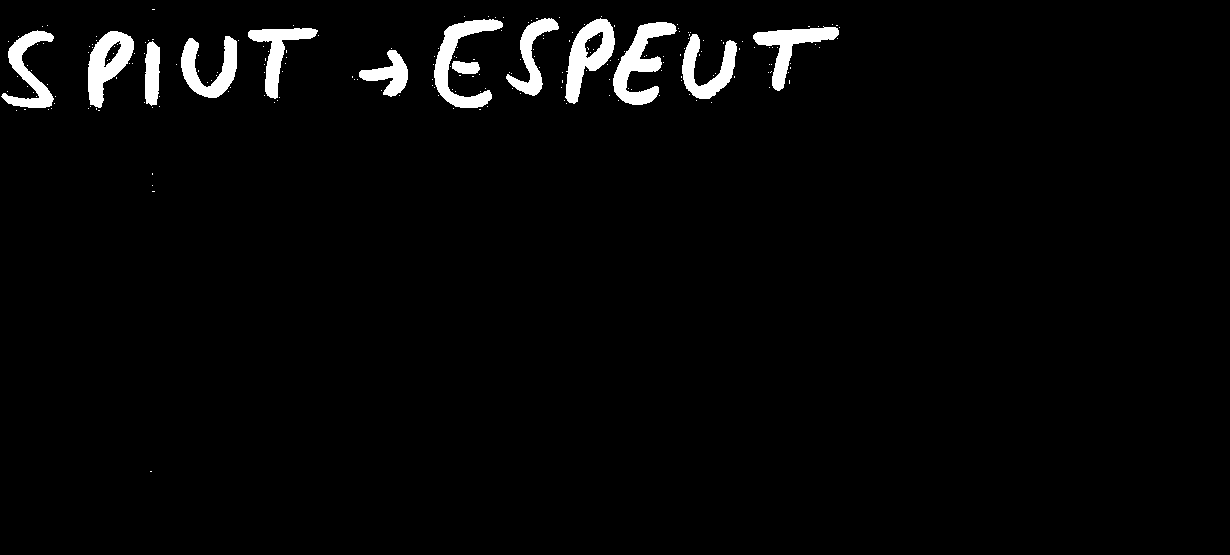 SPIUT → ESPEUT